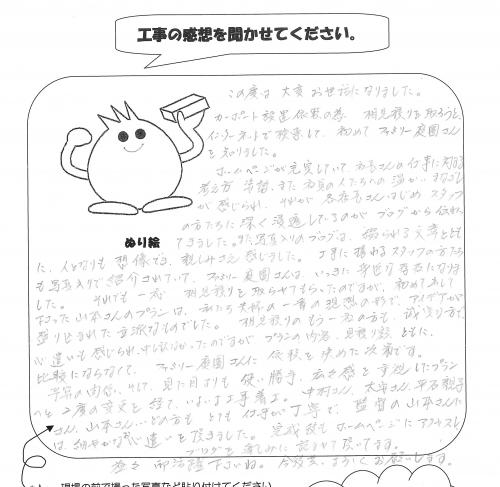 工事の感想を聞かせてください。
この度は 大変 お世話になりました。
カーポート設置依頼の為、相見積りを取ろうと、
インターネットで検索して、初めて ファミリー庭園さん
を知りました。
ホームページが充実していて、社長さんの仕事に対する
考え方
が感じられ、それが 各店長さんはじめ スタッフ
の方たちに 深く浸透しているのがブログから伝わっ
てきました。また写真入りのブログは、綴られる文章ととも
ぬり絵
に、人となりも 想像でき、親しみさえ感じました。工事に携わるスタッフの方たち
も写真入りで紹介されていて、ファミリー庭園さんは、いっきに 身近な存在になりま
した。 それでも一応 相見積りを取らせてもらったのですが、初めて出して
下さった山本さんのプランは、私たち夫婦の一番の理想の形で、アイデアが
盛り込まれた立派なものでした。 相見積りのもう一者の方も、
心遣いも感じられ、 プランの内容、見積り額 ともに、
比較にならなくて、ファミリー庭園さんに 依頼を決めた次第です。
予算の関係、そして、見た目よりも 使い勝手、広さ感を重視したプラン
へと 2度の変更を経て、いよいよ工事着工。中村さん、大平さん、平石親子
さん、山本さん…どの方も とても 仕事が丁寧で、監督の山本さんに
は細やかな気遣いを頂きました。完成後もホームページにアクセスし
ブログを楽しみに 読ませて頂いてます。
益々 御活躍下さいね。今後共、よろしくお願いします。